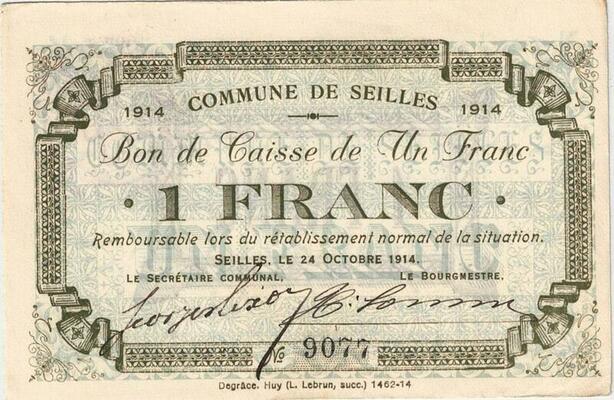 COMMUNE DE SEILLES
1914 1914
Bon de Caisse de Un Franc
· 1 FRANC ·
Remboursable lors du rétablissement normal de la situation.
SEILLES, LE 24 OCTOBRE 1914.
LE SECRÉTAIRE COMMUNAL, LE BOURGMESTRE.
No 9077
Degrâce, Huy (L. Lebrun, succ.) 1462-14